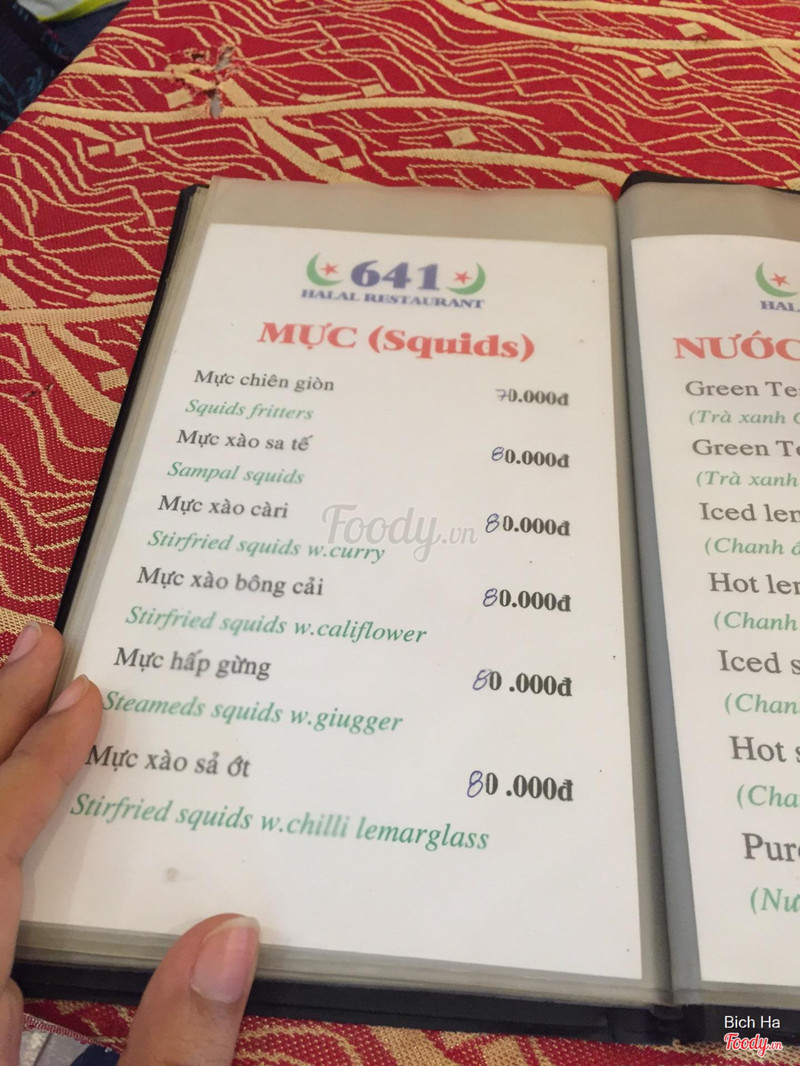 641
HALAL RESTAURANT
MỰC (Squids)
Mực chiên giòn 70.000đ
Squids fritters
Mực xào sa tế 80.000đ
Sampal squids
Mực xào càri 80.000đ
Stirfried squids w.curry
Mực xào bông cải 80.000đ
Stirfried squids w.califlower
Mực hấp gừng 80 .000đ
Steameds squids w.giugger
Mực xào sả ớt 80 .000đ
Stirfried squids w.chilli lemarglass
HAL
NƯỚC
Green Te
(Trà xanh
Green Te
(Trà xanh
Iced lem
(Chanh đ
Hot lem
(Chanh
Iced s
(Chan
Hot s
(Cha
Pure
(Nư
Foody.vn
Bich Ha
Foody.vn